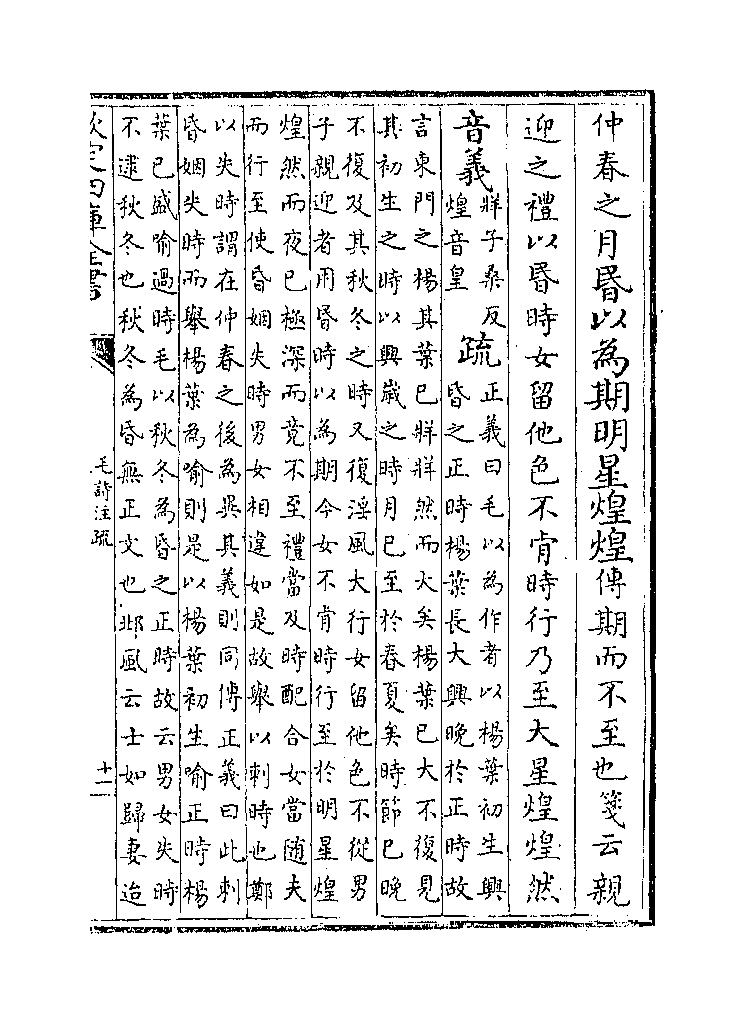 仲春之月昏以為期明星煌煌傳期而不至也箋云親
迎之禮以昏時女留他色不肯時行乃至大星煌煌然
音義
牂子桑反
煌音皇
疏
正義曰毛以為作者以楊葉初生興
昏之正時楊葉長大興晚於正時故
言東門之楊其葉已牂牂然而大矣楊葉已大不復見
其初生之時以興嵗之時月已至於春夏矣時節已晚
不復及其秋冬之時又復淫風大行女留他色不從男
子親迎者用昏時以為期今女不肯時行至於明星煌
煌然而夜已極深而竟不至禮當及時配合女當随夫
而行至使昏姻失時男女相違如是故舉以刺時也鄭
以失時謂在仲春之後為異其義則同傳正義曰此刺
昏姻失時而舉楊葉為喻則是以楊葉初生喻正時楊
葉已盛喻過時毛以秋冬為昏之正時故云男女失時
不逮秋冬也秋冬為昏無正文也邶風云士如歸妻迨
欽定四庫全書
毛詩注疏
十二